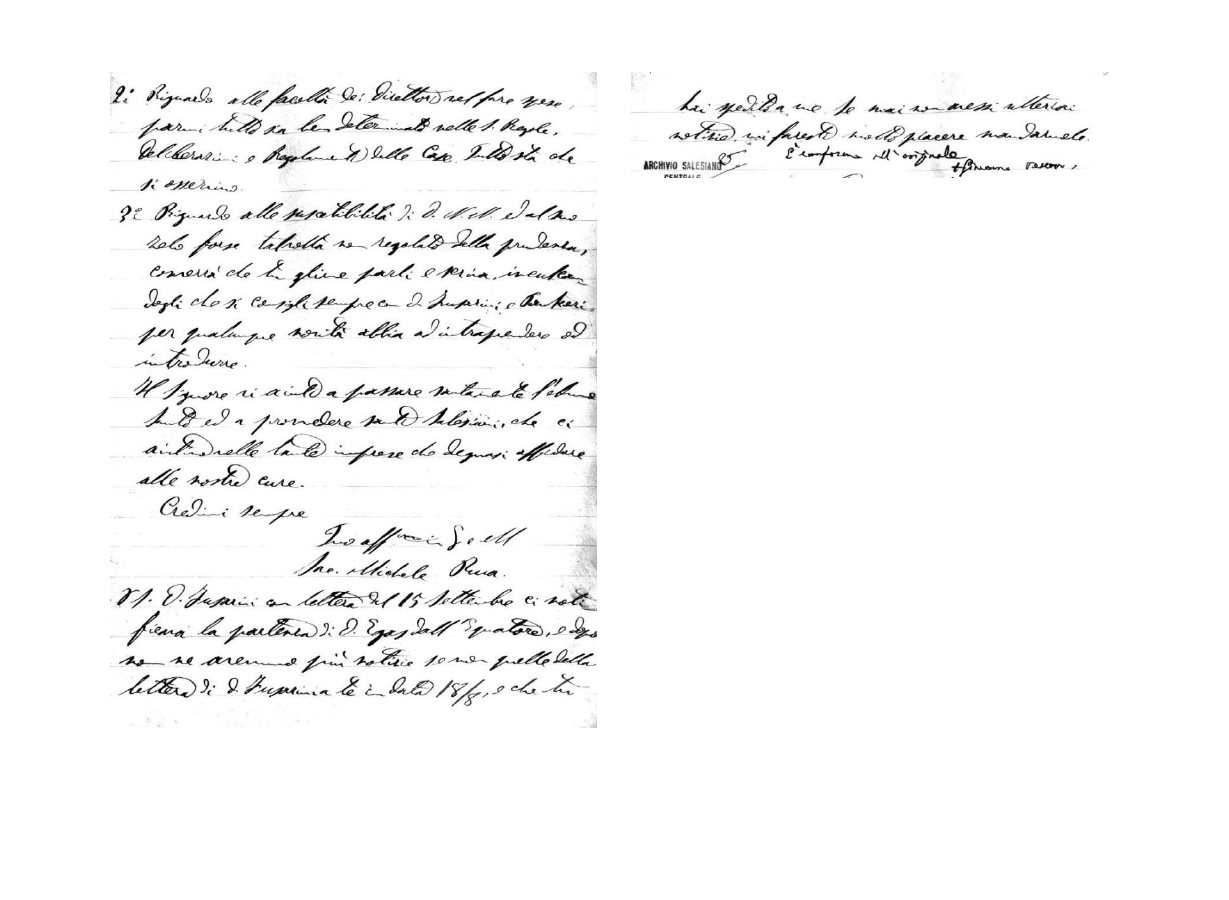 2° Riguardo alle facoltà dei Direttori nel fare spese,
parmi tutto sia ben determinato nelle S. Regole,
Deliberazioni e Regolamenti delle Case. Tutto sta che
si osservino.
3° Riguardo alle suscetibilità di D. N. N. ed al suo
zelo forse talvolta non regolato dalla prudenza,
converrà che tu gliene parli e scriva, inculcan-
dogli che si consigli sempre con D. Fusarini e
per qualunque novità abbia ad intraprendere od
introdurre.
Il Signore vi aiuti a passare santamente l'
santo ed a provvedere santi Salesiani, che ci
aiutino nelle tante imprese che degnasi affidare
alle nostre cure.
Credimi sempre
Tuo aff.mo in G. e M.
Sac. Michele Rua.
P.S. D. Fusarini con lettera del 15 Settembre ci noti
ficava la partenza di D. Egas dall'Equatore, e dopo
non ne avemmo più notizie se non quelle della
lettera di D. Fusarini a te in data 18/8, e che tu
hai spedito a me. Se mai non avessi ulteriori
notizie, mi faresti molto piacere mandarmele.
È conforme all'originale
ARCHIVIO SALESIANO
CENTRALE